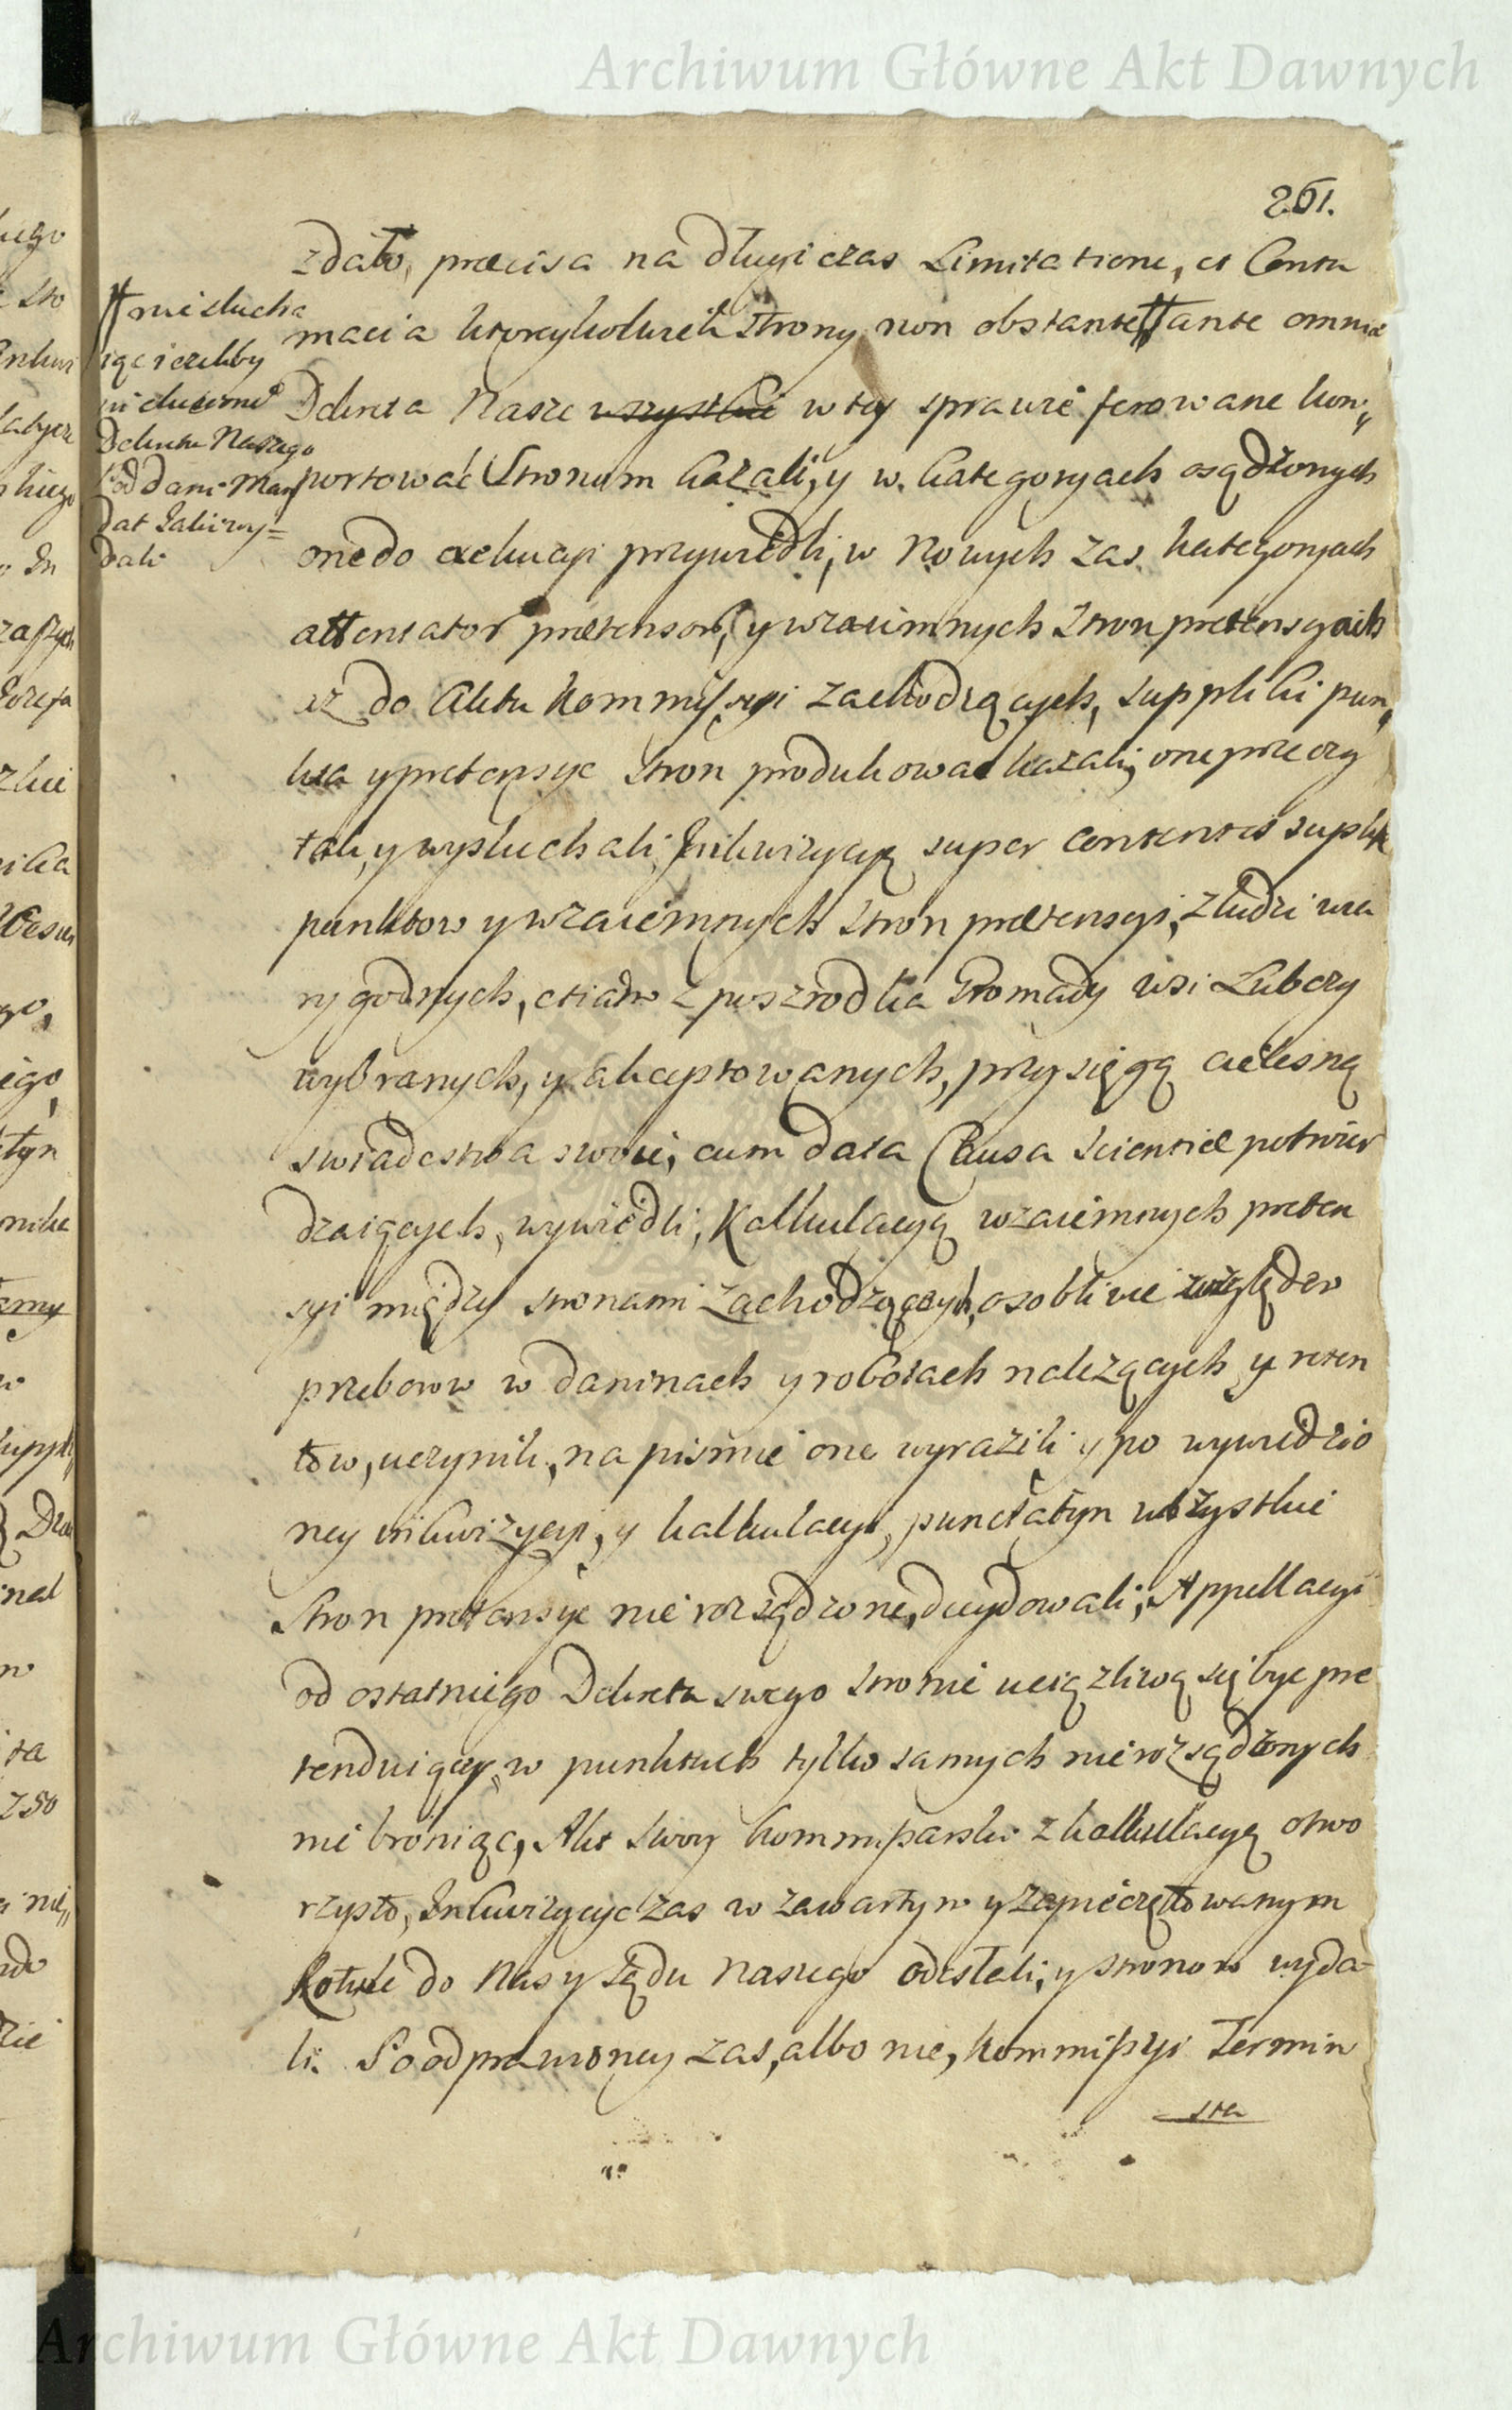 Archiwum Główne Akt Dawnych
261.
zdało, præcisa na długi czas Limitatione, et Contu
macia ktoreykolwiek strony non obstante # ante omnia
Dekreta Nasze wszystkie w tey sprawie ferowane kom„
portować Stronom kazali, y w kategoryach osądzonych
one do exekucyi przywiedli, w Nowych zas kategoryach
attentator prætensor, y wzaiemnych Stron pretensyach
az do Aktu Kommissyi zachodzących, suppliki pun„
kta y pretensye Stron produkowac kazali, one przeczy
tali, y wysłuchali, Inkwizycyą super contentis suplik
punktow y wzaiemnych Stron prætensyi, z ludzi wia
ry godnych, etiam z poszrodka Gromady wsi Lubczy
wybranych, y akceptowanych, przysięgą cielesną
swiadectwa swoie, cum data Causa Scientiæ potwier
dzaiących, wywiedli, Kalkulacyą wzaiemnych preten
syi między stronami zachodzących, osobliwie względem
przeborow w daninach y robotach nalezących y reten
tow, uczynili, na pismie one wyrazili y po wywiedzio
ney inkwizycyi, y kalkulacyi, punctatym wszystkie
Stron pretensye nie rozsądzone, decydowali, Appellacyi
od ostatniego Dekretu swego stronie uciązliwą się byc pre
tenduiącey w punktach tylko samych nierozsądzonych
nie broniąc, Akt swoy kommissarski z kalkulacyą otwo
rzysto, Inkwizycye zas w zawartym y zapieczętowanym
Rotule do Nas y Sądu naszego odesłali, y stronom wyda-
li. Po odprawioney zas, albo nie, kommissyi Termin
sta
# nie słucha
iąc iezeliby
ni
Dekretu Naszego
Poddani Man
dat Jaki wy=
dali
Archiwum Główne Akt Dawnych